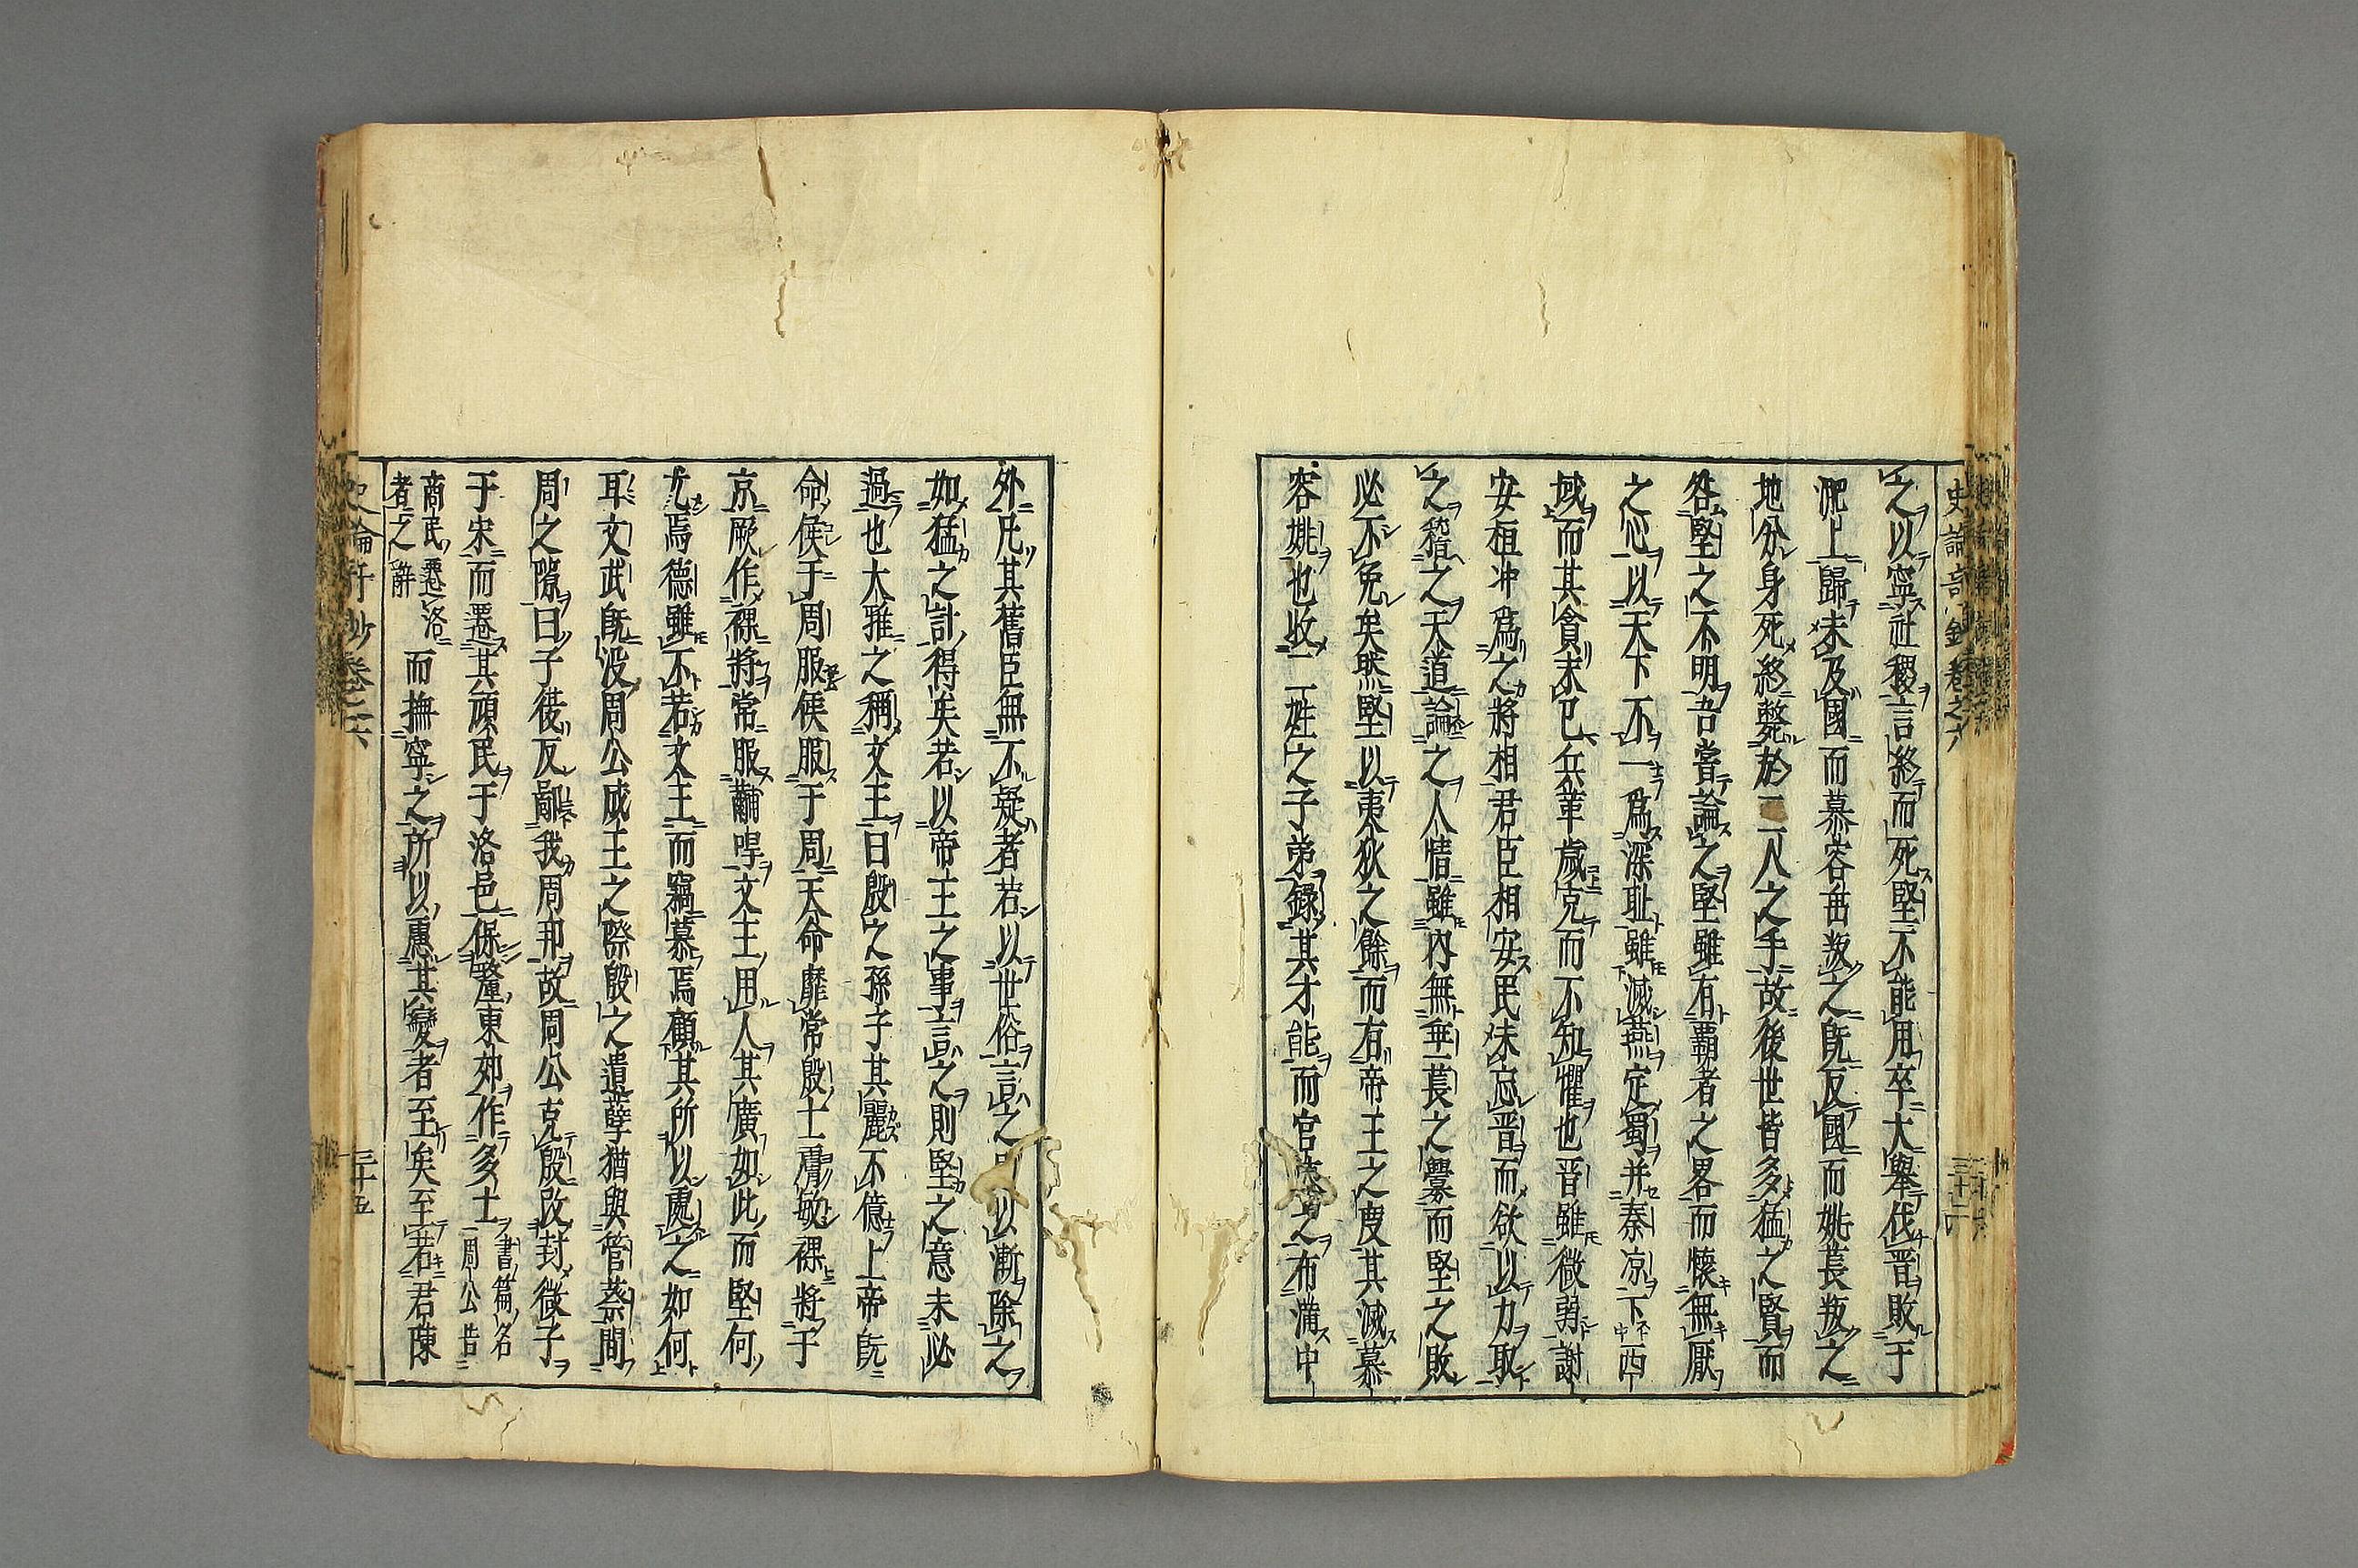 之以寧社稷言終而死堅不能用卒大舉伐晋敗于
淝上歸未及國而慕容垂叛之既反國而姚萇叛之
地分身死終斃於二人之手故後世皆多猛之賢而
咎堅之不明吾嘗論之堅雖有覇者之畧而懷無厭
之心以天下不一為深耻雖滅燕定蜀并秦凉下西
域而其貪未已兵革歲克而不知懼也晋雖微弱謝
安桓冲為之將相君臣相安民未忘晋而欲以力取
之稽之天道論之人情雖内無垂萇之釁而堅之敗
必不免矣然堅以夷狄之餘而有帝王之度其滅慕
容姚也收二姓之子弟錄其才能而官之布滿中
外凡其舊臣無不疑者若以世俗言之以漸除之
如猛之計得矣若以帝王之事言之則堅之意未必
過也大雅之稱文王曰殷之孫子其麗不億上帝既
命侯于周服侯服于周天命靡常殷士膚敏裸將于
京厥作裸將常服黼冔文王用人其廣如此而堅何
尤焉德雖不若文王而竊慕焉顧其所以處之如何
耳文武既没周公成王之際殷之遺孽猶與管蔡間
周之隙曰予復反鄙我周邦故周公克殷改封微子
于宋而遷其頑民于洛邑保釐東郊作多士書篇名周公告
商民遷洛者之辭而撫寧之所以慮其變者至矣至若君陳
史論奇鈔卷之六
三十五